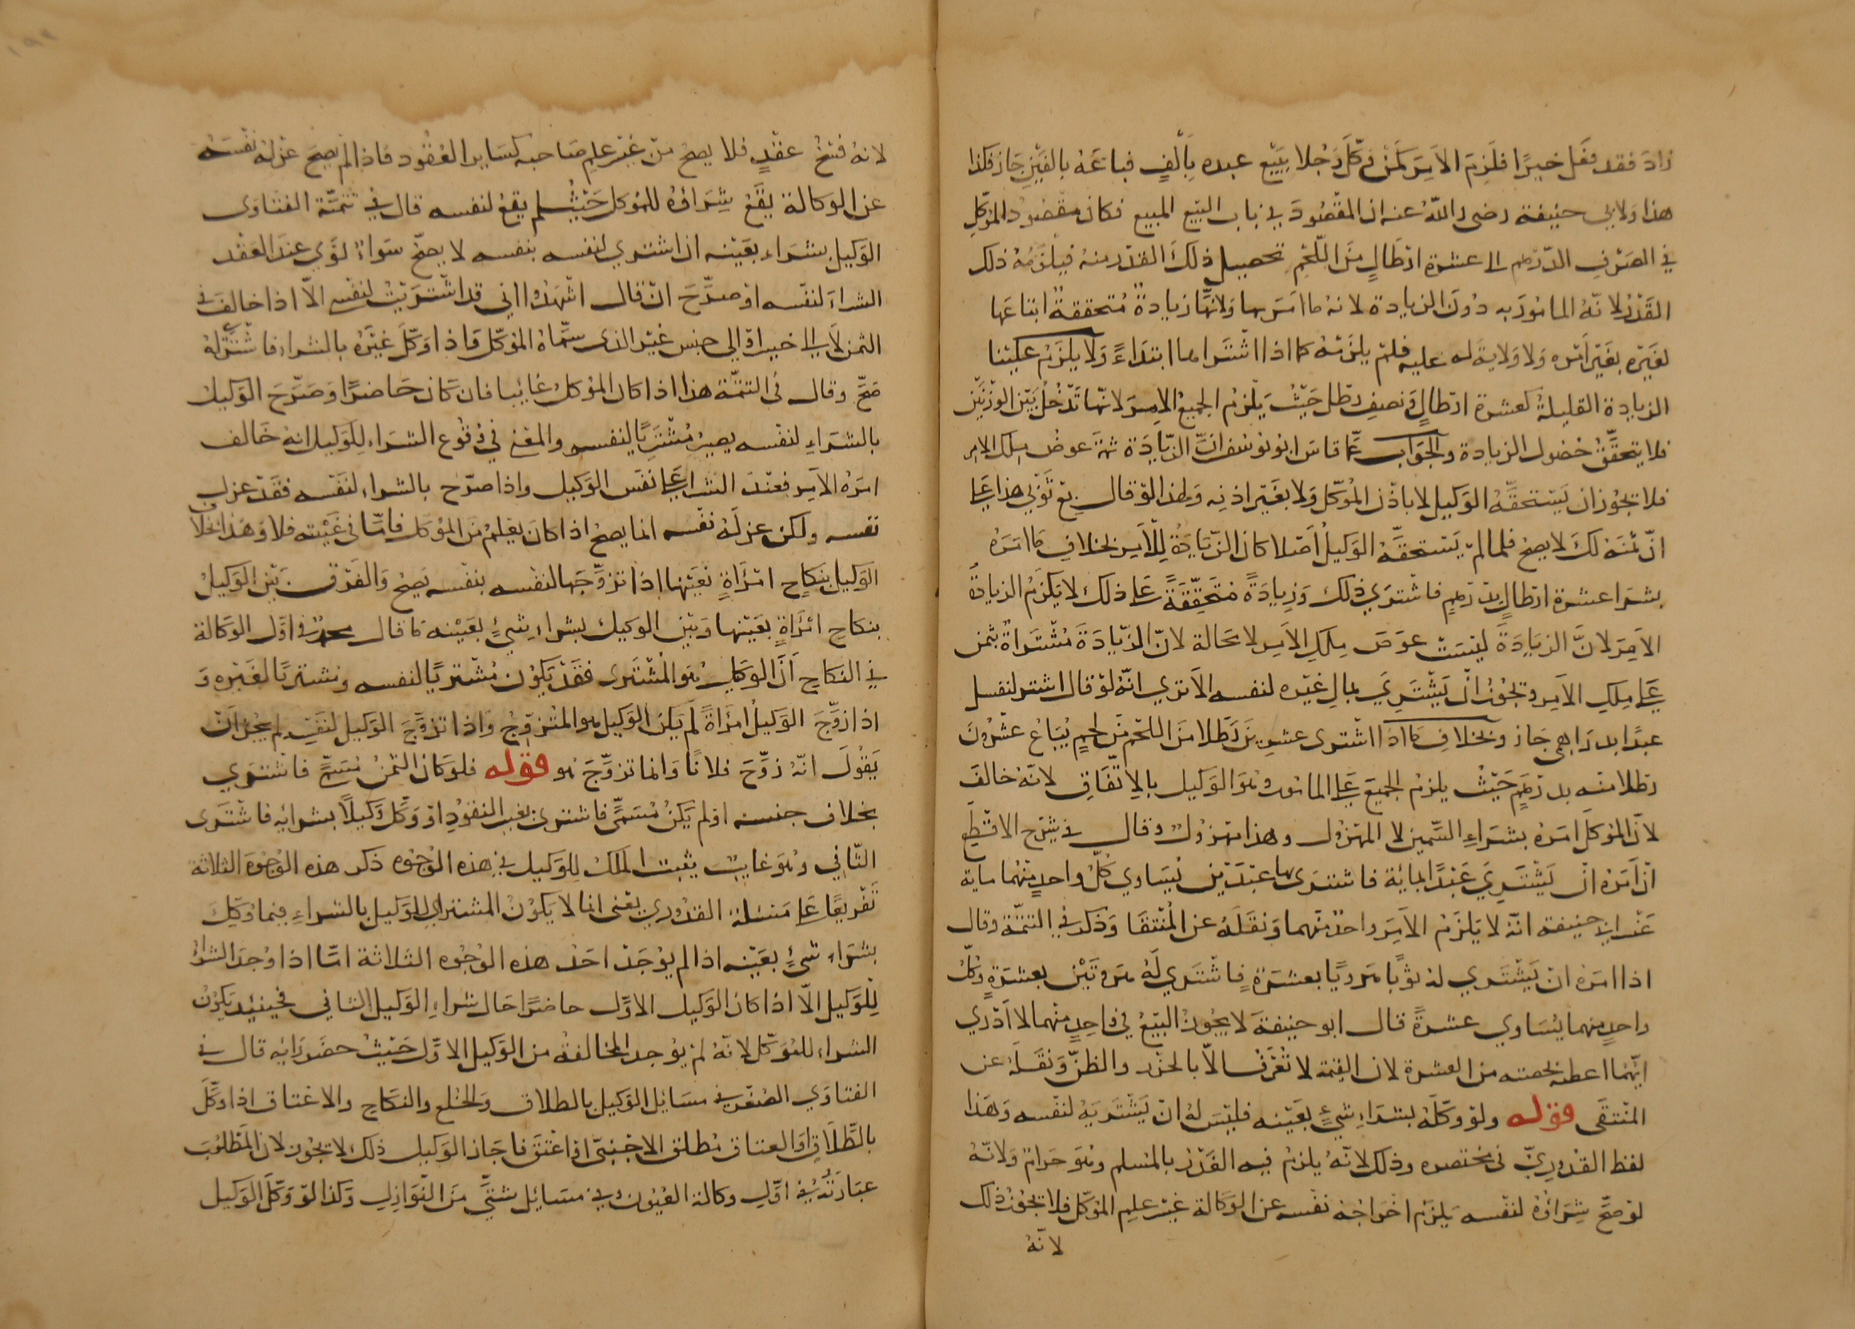 زاد فقد فعل خيرًا فلزم الآمر كمن وكّل رجلا ببيع عبده بألفٍ فباعه بالفين جاز فكذا
هذا ولابي حنيفة رضى الله عنه ان المقصود في باب البيع المبيع فكان مقصود الموكل
في الصرف الدرهم الى عشرة ارطالٍ من اللحم تحصيل ذلك القدر منه فيلزمه ذلك
القدر لانه المامور به دون الزيادة لانه ما امر بها ولانها زيادة متحققة ابتاعها
لغيره بغير امره ولا ولاية له عليه فلم يلزمه كما اذا اشتراها ابتداءً ولا يلزم علينا
الزيادة القليلة كعشرة ارطالٍ ونصف رطل حيث يلزم الجميع الآمر لانها تدخل بين الوزنين
فلا يتحقق حصول الزيادة والجواب عما قاس ابو يوسف ان الزيادة ثمة عوض ملك الامر
فلا يجوز ان يستحقه الوكيل لا باذن الموكل ولا بغير اذنه ولهذا لو قال بع ثوبي هذا على
انّ ثمنه لك لا يصح فلما لم يستحقه الوكيل اصلا كان الزيادة للآمر بخلاف ما امره
بشرا عشرة ارطالٍ بدرهمٍ فاشترى ذلك وزيادةً متحققةً على ذلك لا يلزم الزيادة
الآمر لانّ الزيادة ليست عوض ملك الآمر لا محالة لانّ الزيادة مشتراة بثمن
على ملك الآمر ويجوز ان يشتري بمال غيره لنفسه الا ترى انه لو قال اشتر لنفسك
عبدًا بدراهمى جاز وبخلاف ما اذا اشترى عشرين رطلا من اللحم من لحمٍ يباع عشرون
رطلا منه بدرهمٍ حيث يلزم الجميع على المامور وهو الوكيل بالاتفاق لانه خالف
لان الموكل امره بشراء السمين لا المهزول وهذا مهزول وقال في شرح الاقطع
ان امره ان يشتري عبدًا بماية فاشترى بها عبدين يساوي كل واحدٍ منهما ماية
عند ابي حنيفة انه لا يلزم الآمر واحد منهما ونقله عن المنتقا وذكر في التتمة وقال
اذا امره ان يشتري له ثوبًا مرويًا بعشرة فاشترى له مرويين بعشرةٍ وكل
واحدٍ منهما يساوي عشرةً قال ابو حنيفة لا يجوز البيع في واحدٍ منهما لا ادري
ايهما اعطيه بحصته من العشرة لان القيمة لا تعرف الا بالحزر والظن ونقله عن
المنتقى قوله ولو وكله بشراء شيءٍ بعينه فليس له ان يشتريه لنفسه وهذا
لفظ القدوريّ في مختصره وذلك لانه يلزم فيه الغرر بالمسلم وهو حرام ولانه
لو صح شراؤه لنفسه يلزم اخراجه نفسه عن الوكالة غير علم الموكل فلا يجوز ذلك
لانه
لانه فسخ عقدٍ فلا يصح من غير علم صاحبه كساير العقود فاذا لم يصح عزله نفسه
عن الوكالة يقع شراؤه للموكل حيث لم يقع لنفسه قال في تتمة الفتاوى
الوكيل بشراء بعينه اذا اشترى لنفسه بنفسه لا يصح سواءً نوي عند العقد
الشراء لنفسه او صرّح ان قال اشهدوا اني قد اشتريت لنفسي الا اذا خالف في
الثمن لا الى خير او الى جنس غير الذى سماه الموكل فاذا وكل غيره بالشراء فاشتراه
صح وقال في التتمة هذا اذا كان الموكل غايبا فان كان حاضرًا وصرّح الوكيل
بالشراء لنفسه يصير مشتريًا لنفسه والمعنى في وقوع الشراء للوكيل انه خالف
امره الآمر فعند الشراء على نفس الوكيل واذا صرح بالشراء لنفسه فقد عزل
نفسه ولكن عزله نفسه انما يصح اذا كان بعلم من الموكل فاما في غيبته فلا وهذا بخلاف
الوكيل بنكاح امرأةٍ بعينها اذا تزوجها لنفسه بنفسه يصح والفرق بين الوكيل
بنكاح امرأةٍ بعينها وبين الوكيل بشراء شيءٍ بعينه ما قال محمد في اول الوكالة
في النكاح انّ الوكيل هو المشترى فقد يكون مشتريًا لنفسه ومشتريًا لغيره و
اذا زوّج الوكيل امرأةً لم يكن الوكيل هو المتزوج واذا تزوج الوكيل لنفسه لم يجز ان
يقول انه زوّج فلانًا وانما تزوّج هو قوله فلو كان الثمن مسمّى فاشترى
بخلاف جنسه او لم يكن مسمّى فاشترى بغير النقود او وكّل وكيلاً بشرائه فاشترى
الثاني وهو غايب يثبت الملك للوكيل في هذه الوجوه ذكر هذه الوجوه الثلاثة
تفريعًا على مسئلة القدوري يعنى انما لا يكون المشترى للوكيل بالشراء فيما وكل
بشراء شيءٍ بعينه اذا لم يوجد احد هذه الوجوه الثلاثة امّا اذا وجد الشراء
للوكيل الا اذا كان الوكيل الاول حاضرًا حال شراء الوكيل الثاني فحينئذ يكون
الشراء للموكل لانه لم يوجد المخالفة من الوكيل الاول حيث حضر رايه قال في
الفتاوي الصغرى في مسائل الوكيل بالطلاق والخلع والنكاح والاعتاق اذا وكّل
بالطلاق او العتاق فطلق الاجنبي او اعتق فاجاز الوكيل ذلك لا يجوز لان المطلوب
عبارته في اول وكالة العيون وفي مسائل شتّى من النوازل وكذا لو وكل الوكيل